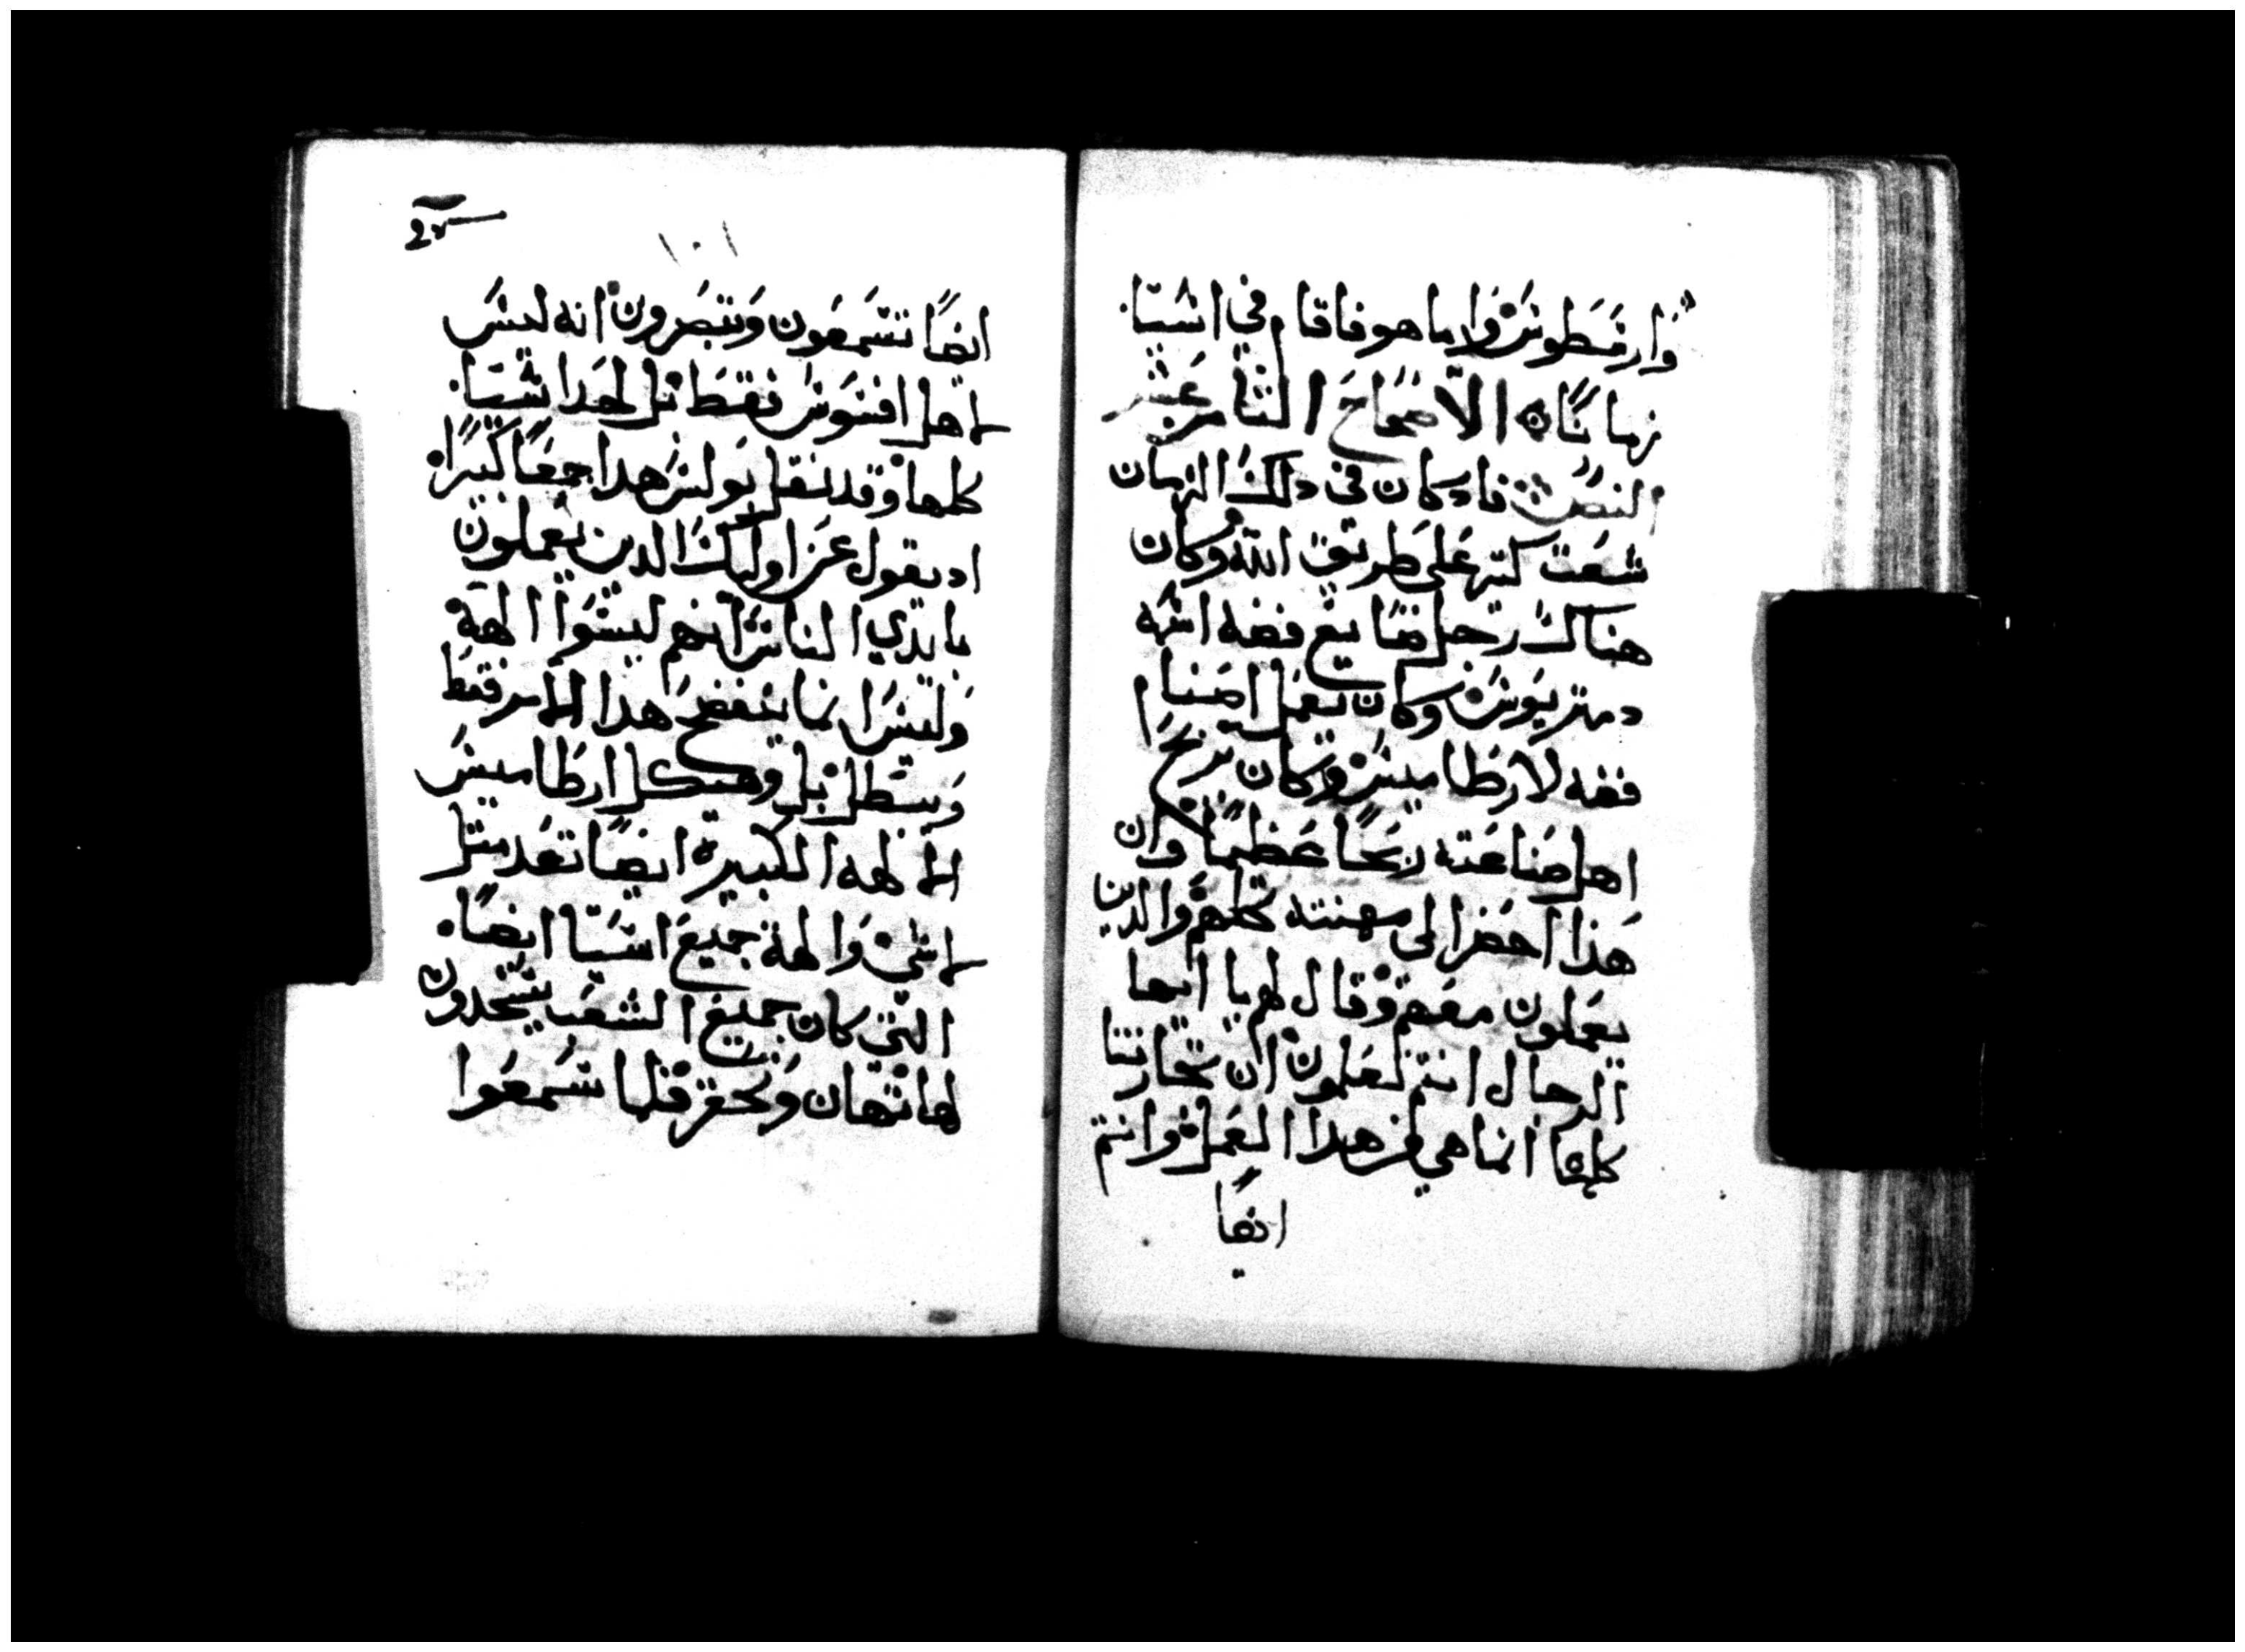 وارسطوس واما هو فاقام في اسيا
زمانًا الاصحاح الثامن عشر
النص فاذ كان في ذلك الزمان
شعت كتير على طريق الله وكان
هناك رجل صايغ فضه اسمه
دمتريوس وكان يعمل اصناما
فضه لارطاميس وكان يربح
اهل صناعته ربحًا عظيمًا وان
هذا احضر الى مهنته كلهم والدين
يعملون معهم وقال لهم يا ايها
الرجال انتم تعلمون ان تجارتنا
كلها انما هي من هدا العمل وانتم
ايضا
١٠١
ايضًا تسمعون وتبصرون انه ليس
لاهل افسوس فقط بل لهدا اسيا
كلها وقد نقل بولس هدا جمعًا كبيرًا
اد يقول عن اوليك الدين يعملون
بايدي الناس انهم ليسوا الهة
وليس انما يفضح هدا الامر فقط
ويبطل بل وهيكل ارطاميس
الالهه الكبيره ايضًا تعد مثل
لاشي والهة جميع اسيا ايضًا
التي كان جميع الشعب يسجدون
لها تهان وتحقر فلما سمعوا